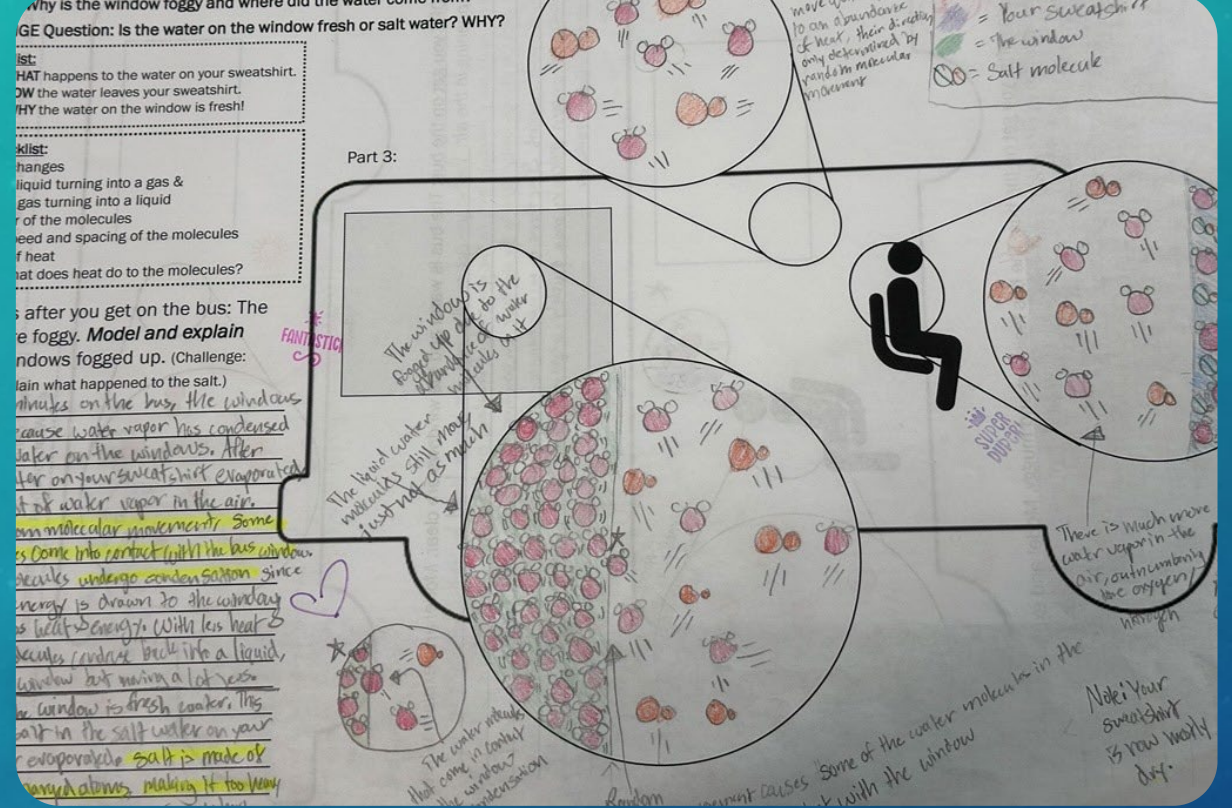 Why is the window foggy and where did the water come from
GE Question: Is the water on the window fresh or salt water? WHY?
ist:
HAT happens to the water on your sweatshirt.
OW the water leaves your sweatshirt.
HY the water on the window is fresh!
klist:
hanges
liquid turning into a gas &
gas turning into a liquid
r of the molecules
eed and spacing of the molecules
f heat
at does heat do to the molecules?
s after you get on the bus: The
e foggy. Model and explain
ndows fogged up. (Challenge:
lain what happened to the salt.)
minutes on the bus, the windows
cause water vapor has condensed
water on the windows. After
ter on your sweatshirt evaporated
t of water vapor in the air.
om molecular movement, some
es come into contact with the bus window.
olecules undergo condensation since
nergy is drawn to the window
s heat energy. With less heat &
ecules condense back into a liquid,
window but moving a lot less.
e window is fresh water. This
salt in the salt water on your
r evaporated. Salt is made of
harged atoms, making it too heavy
Part 3:
FANTASTIC!
The window is
fogged up due to the
abundance of water
molecules on it
The liquid water
molecules still move
just not as much
move
to an abundance
of heat, their direction
only determined by
random molecular
movement
= Your sweatshirt
= The window
= Salt molecule
SUPER
DUPER!
There is much more
water vapor in the
air, outnumbering
the oxygen/
nitrogen
The water molecules
that come in contact
the window
condensation
Random
movement causes some of the water molecules in the
with the window
Note: Your
sweatshirt
is now mostly
dry.